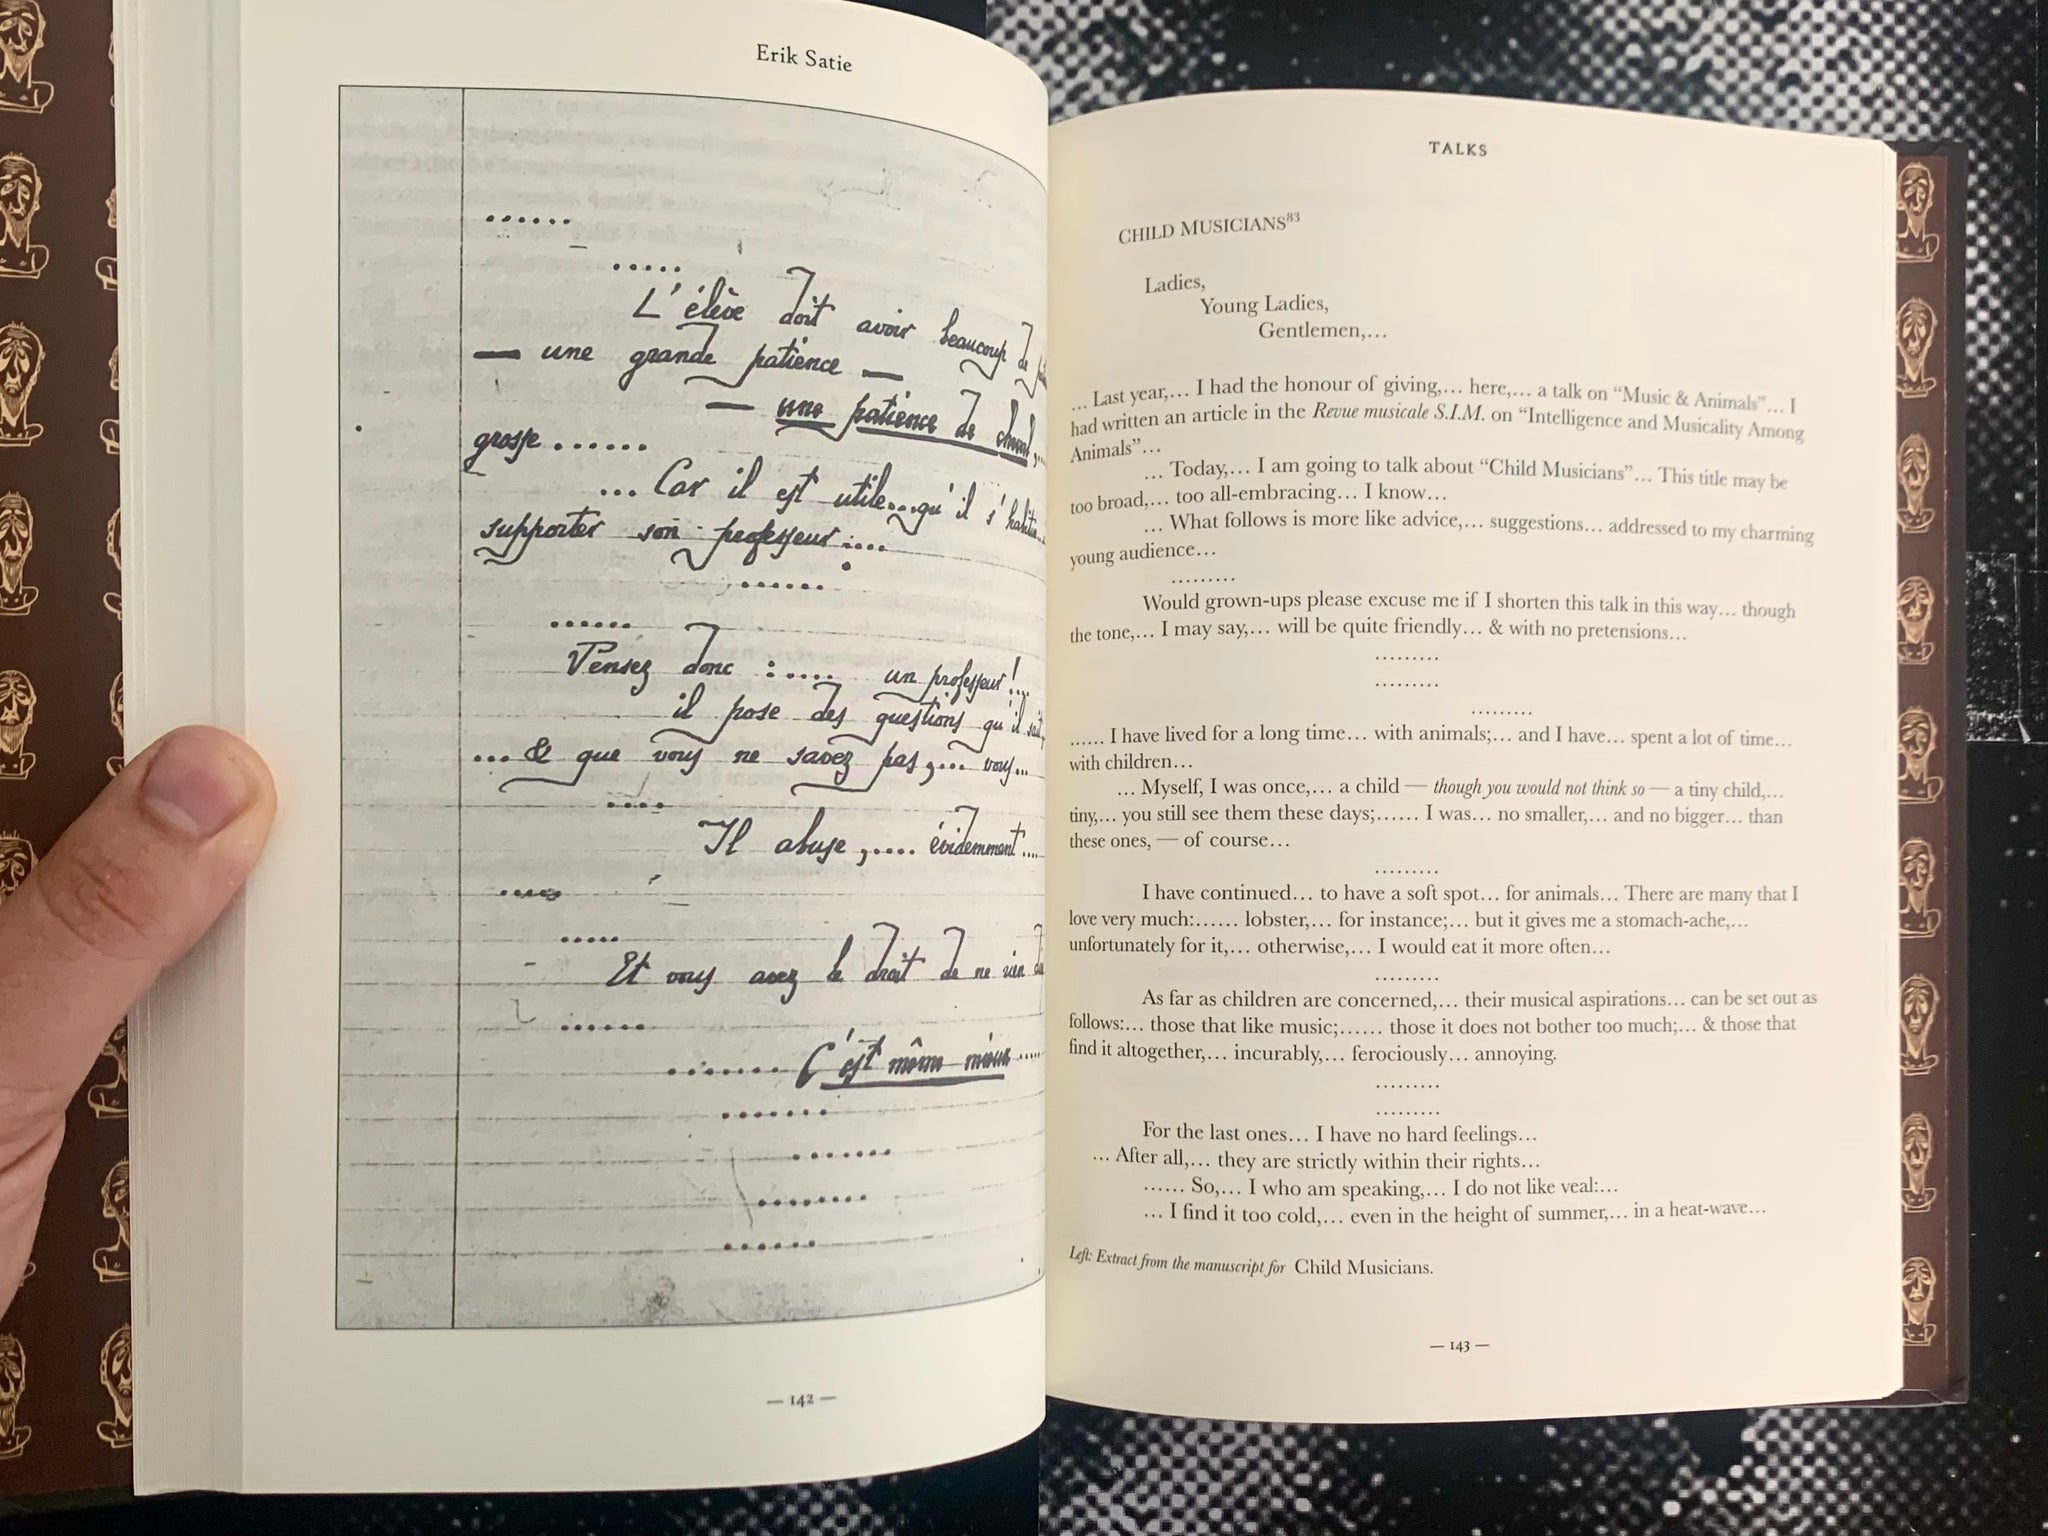 Erik Satie
......
.....
L'élève doit avoir beaucoup de
— une grande patience —
— une patience de cheval,...
grosse......
... Car il est utile...qu'il s'habitue...
supporter son professeur :....
......
......
Pensez donc :.... un professeur!...
il pose des questions qu'il sait,
... & que vous ne savez pas,... vous...
....
Il abuse,.... évidemment....
....
.....
Et vous avez le droit de ne rien
......
....... C'est même mieux.....
.......
.......
.......
......
— 142 —
TALKS
CHILD MUSICIANS83
Ladies,
Young Ladies,
Gentlemen,...
... Last year,... I had the honour of giving,... here,... a talk on “Music & Animals”... I
had written an article in the Revue musicale S.I.M. on “Intelligence and Musicality Among
Animals”...
... Today,... I am going to talk about “Child Musicians”... This title may be
too broad,... too all-embracing... I know...
... What follows is more like advice,... suggestions... addressed to my charming
young audience...
.........
Would grown-ups please excuse me if I shorten this talk in this way... though
the tone,... I may say,... will be quite friendly... & with no pretensions...
.........
.........
.........
...... I have lived for a long time... with animals;... and I have... spent a lot of time...
with children...
... Myself, I was once,... a child — though you would not think so — a tiny child,...
tiny,... you still see them these days;...... I was... no smaller,... and no bigger... than
these ones, — of course...
.........
I have continued... to have a soft spot... for animals... There are many that I
love very much:...... lobster,... for instance;... but it gives me a stomach-ache,...
unfortunately for it,... otherwise,... I would eat it more often...
.........
As far as children are concerned,... their musical aspirations... can be set out as
follows:... those that like music;...... those it does not bother too much;... & those that
find it altogether,... incurably,... ferociously... annoying.
.........
.........
For the last ones... I have no hard feelings...
... After all,... they are strictly within their rights...
...... So,... I who am speaking,... I do not like veal:...
... I find it too cold,... even in the height of summer,... in a heat-wave...
Left: Extract from the manuscript for Child Musicians.
— 143 —